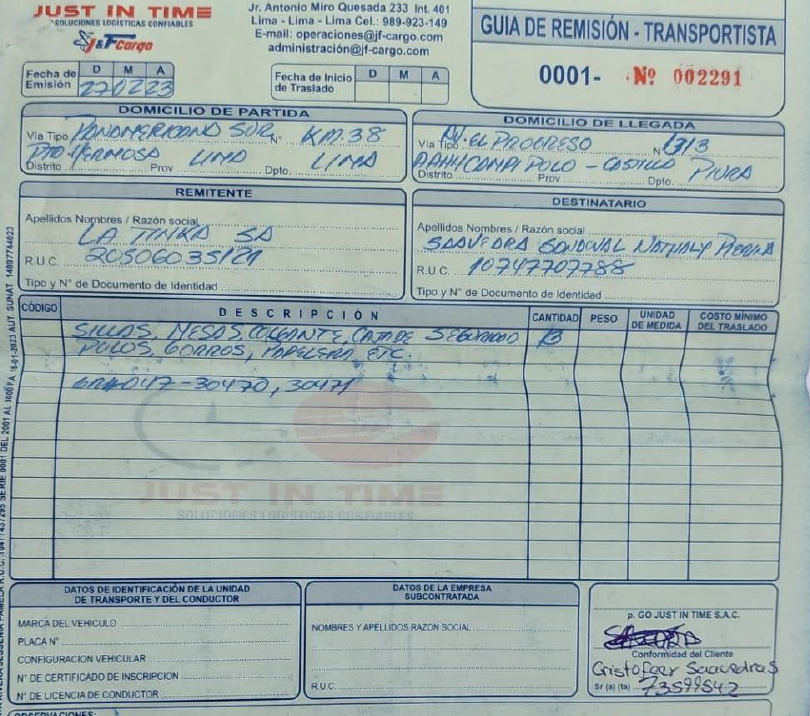 JUST IN TIME
SOLUCIONES LOGÍSTICAS CONFIABLES
J&F Cargo
Jr. Antonio Miro Quesada 233 Int. 401
Lima - Lima - Lima Cel.: 989-923-149
E-mail: operaciones@jf-cargo.com
administración@jf-cargo.com
GUIA DE REMISIÓN - TRANSPORTISTA
0001- Nº 002291
Fecha de Emisión D M A
270223
Fecha de Inicio de Traslado D M A
DOMICILIO DE PARTIDA
Via Tipo PANAMERICANA SUR N° KM.38
PTO HERMOSA LIMA LIMA
Distrito Prov Dpto.
DOMICILIO DE LLEGADA
Via Tipo AV. EL PROGRESO N° 1313
AAHH CAMPO POLO - CASTILLA PIURA
Distrito Prov. Dpto.
REMITENTE
Apellidos Nombres / Razón social
LA TINKA SA
R.U.C. 20506035121
Tipo y N° de Documento de Identidad
DESTINATARIO
Apellidos Nombres / Razón social
SAAVEDRA SANDOVAL NATHALY PIERINA
R.U.C. 10747707788
Tipo y N° de Documento de Identidad
CÓDIGO DESCRIPCIÓN CANTIDAD PESO UNIDAD DE MEDIDA COSTO MÍNIMO DEL TRASLADO
SILLAS, MESAS, COLGANTE, CAJA DE SEGURIDAD 13
POLOS, GORROS, PAPELERA, ETC.
047-30470, 30471
JUST IN TIME
SOLUCIONES LOGÍSTICAS CONFIABLES
DATOS DE IDENTIFICACIÓN DE LA UNIDAD DE TRANSPORTE Y DEL CONDUCTOR
MARCA DEL VEHICULO
PLACA N°
CONFIGURACION VEHICULAR
N° DE CERTIFICADO DE INSCRIPCION
N° DE LICENCIA DE CONDUCTOR
DATOS DE LA EMPRESA SUBCONTRATADA
NOMBRES Y APELLIDOS RAZON SOCIAL
R.U.C.
p. GO JUST IN TIME S.A.C.
Conformidad del Cliente
Cristofeer Saavedra S
Sr (a) (ta) 73599542
OBSERVACIONES: